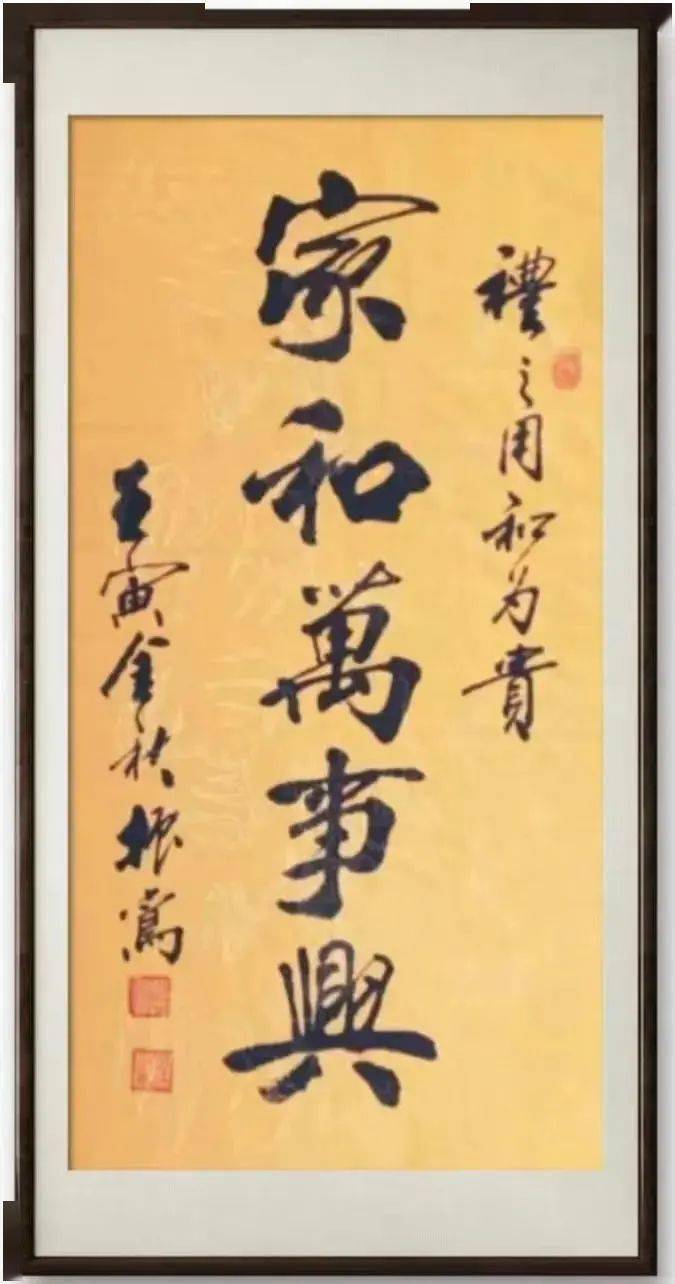 禮之用和为貴
家和萬事興
壬寅金秋振寫